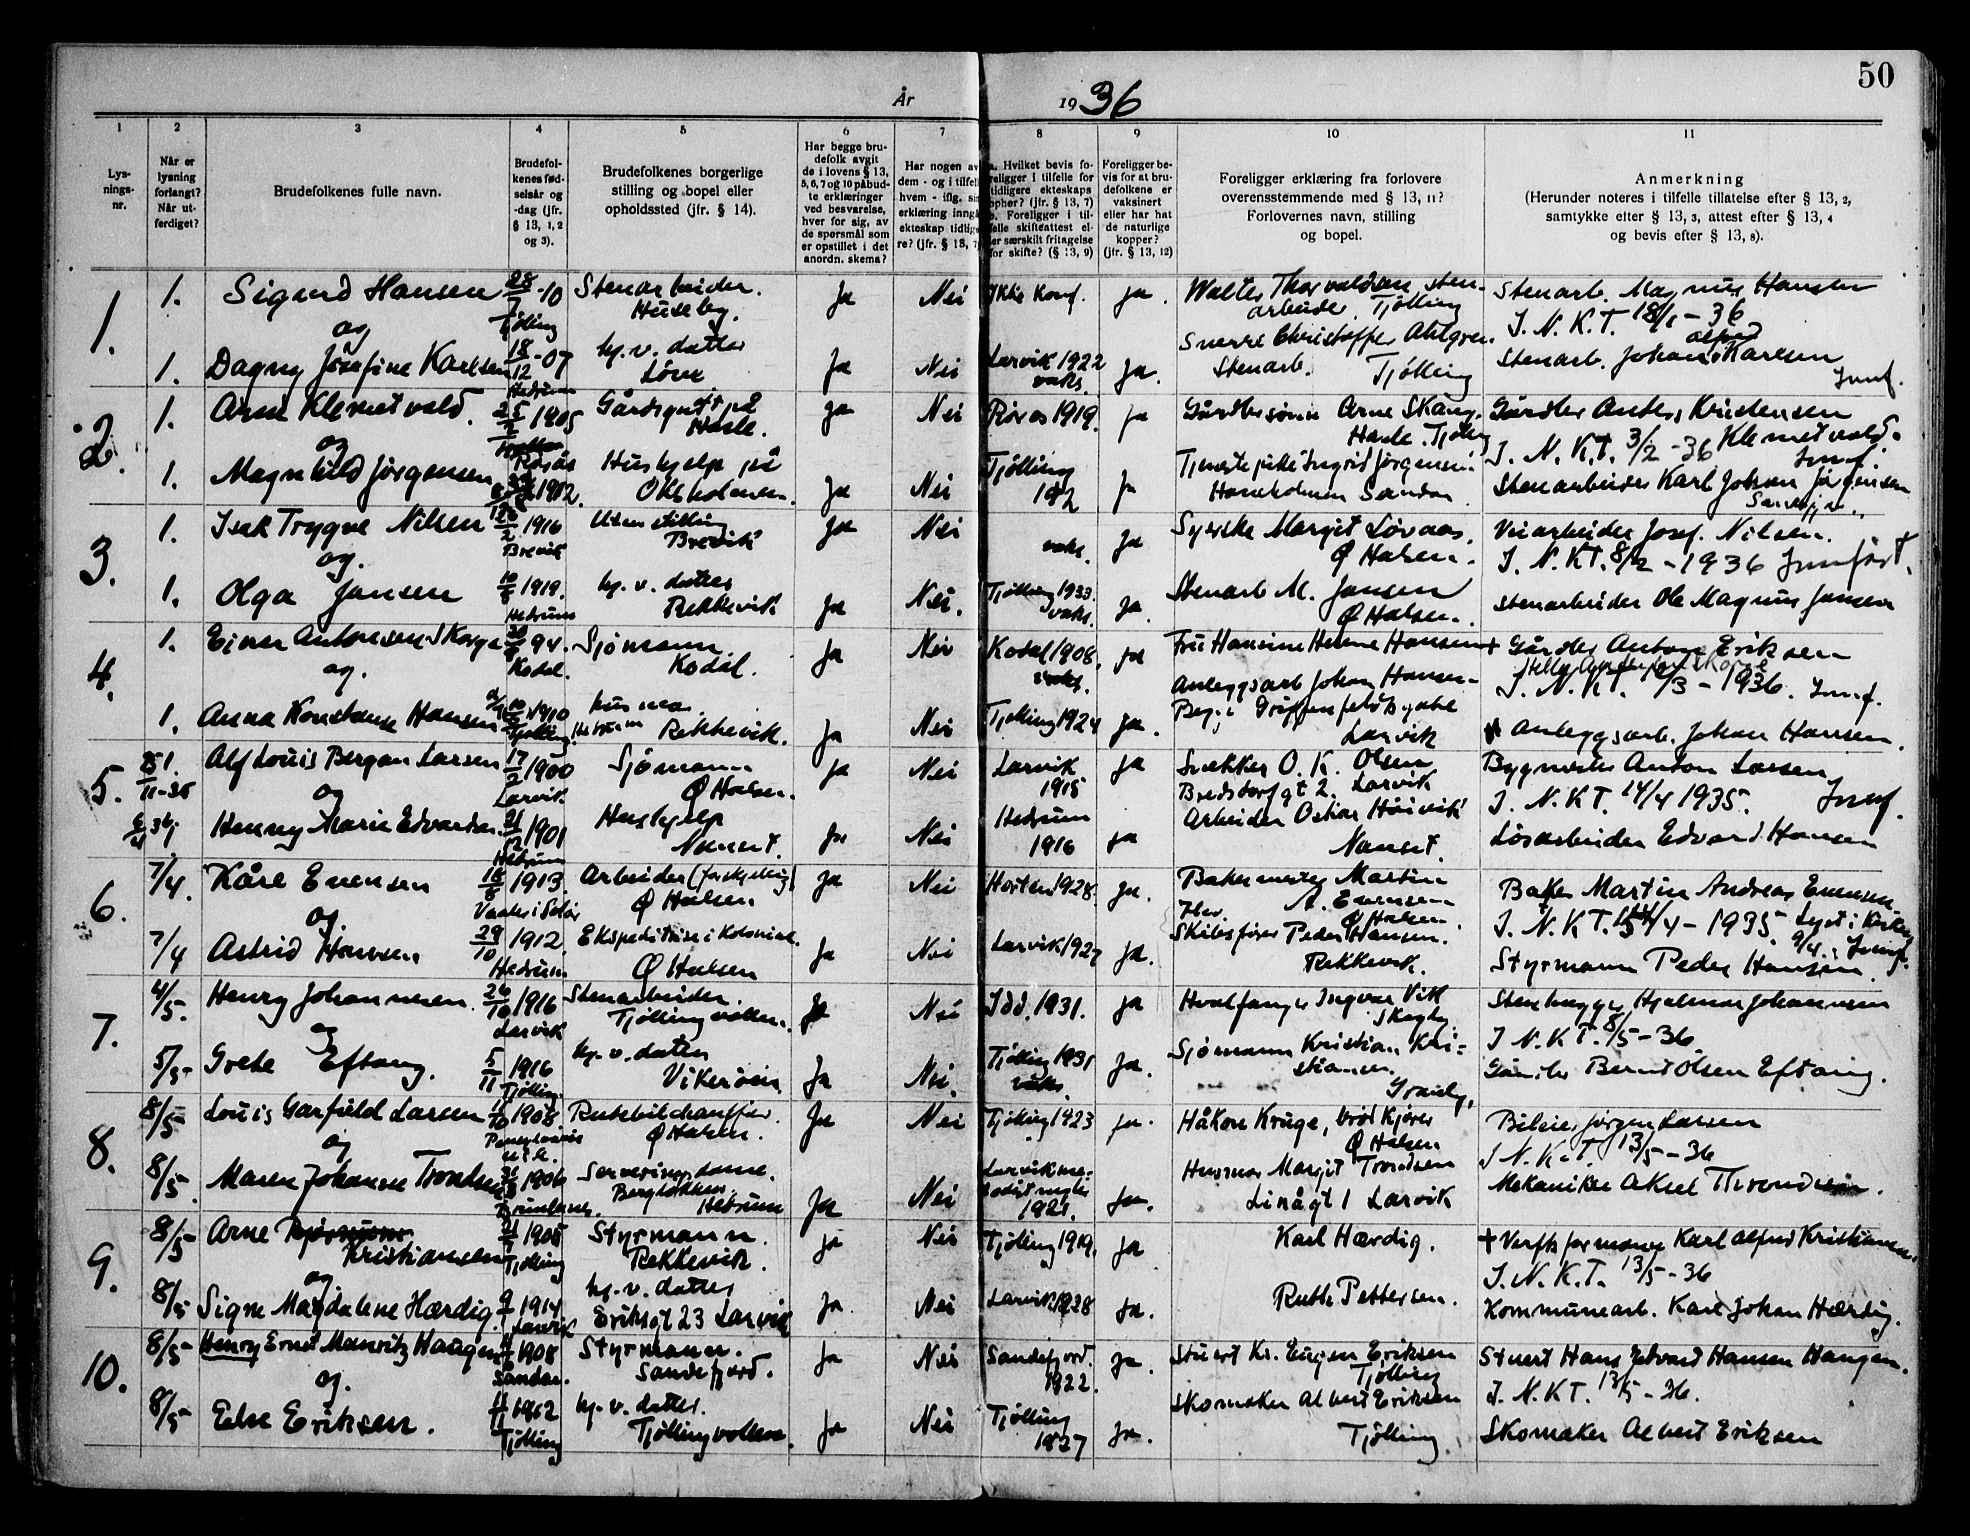 50
År 1936
1 2 3 4 5 6 7 8 9 10 11
Lysningsnr.
Når er lysning forlangt? Når utferdiget?
Brudefolkenes fulle navn.
Brudefolkenes fødselsår og -dag (jfr. § 13, 1, 2 og 3).
Brudefolkenes borgerlige stilling og bopel eller opholdssted (jfr. § 14).
Har begge brudefolk avgit de i lovens § 13, 5, 6, 7 og 10 påbudte erklæringer ved besvarelse, hver for sig, av de spørsmål som er opstillet i det anordn. skema?
Har nogen av dem - og i tilfelle hvem - iflg. sin erklæring inngått ekteskap tidligere? (jfr. § 13, 7)
Hvilket bevis foreligger i tilfelle for tidligere ekteskaps ophør? (jfr. § 13, 7) b. Foreligger i tilfelle skifteattest eller særskilt fritagelse for skifte? (§ 13, 9)
Foreligger bevis for at brudefolkene er vaksinert eller har hat de naturlige kopper? (jfr. § 13, 12)
Foreligger erklæring fra forlovere overensstemmende med § 13, 11? Forlovernes navn, stilling og bopel.
Anmerkning (Herunder noteres i tilfelle tillatelse efter § 13, 2, samtykke efter § 13, 3, attest efter § 13, 4 og bevis efter § 13, 8).
1. 1. Sigurd Hansen 28/7-10 Tjølling Stenarbeider. Huseby. Ja Nei Ikke konf. ja. Walter Thorvaldsen, stenarbeider, Tjølling Stenarb. Magnus Hansen
og
I. N. K. T. 18/1-36
1. Dagny Josefine Karlsen 18/12-07 Hedrum hj.v. datter Løve Ja Nei Larvik 1922 vaks. ja. Sverre Christoffer Ahlgren. Stenarb. Tjølling Stenarb. Johan Alfred Karlsen Jmf.
2. 1. Arne Klemetvold. 1905 Røros Gårdsgutt på Hasle. ja Nei Røros 1919. ja Gårdbr.sønn Arne Skaug. Hasle. Tjølling Gårdbr Anders Kristensen Klemetvold.
og
I. N. K. T. 3/2-36 Jmf.
1. Magnhild Jørgensen 1912. Hushjelp på Oksholmen. Ja Nei Tjølling 192 ja Tjenestepike Ingrid Jørgensen. Sandar Stenarbeider Karl Johan Jørgensen
3. 1. Isak Trygve Nilsen 1916 Brevik Uten stilling Brevik Ja Nei vaks. Ja Syerske Margit Løvaas. Ø Halsen. Veiarbeider Josef Nilsen.
og.
I. N. K T. 8/2-1936 Jmfört.
1. Olga Jansen 1919. Hedrum hj. v. datter Rekkevik Ja Nei. Tjølling 1933. vaks. Ja. Stenarb M. Jansen Ø Halsen. Stenarbeider Ole Magnus Jansen
4. 1. Einar Antonsen Skorge 94. Kodal. Sjømann. Kodal. Ja Nei Kodal 1908. vaks. ja Fru Hansine Helene Hansen + Gårdbr Anton Eriksen
og.
I. N. K T. 6/3-1936. Jmf.
1. Anna Konstanse Hansen 1910 Tjølling. Rekkevik. Ja Nei Tjølling 1924 Ja. Anleggsarb Johan Hansen Larvik + Anleggsarb. Johan Hansen.
5. 25/11-35 Alf Louis Bergan Larsen 17/2 1900 Larvik Sjømann Ø Halsen. ja Nei Larvik 1915 ja Snekker O. K. Olsen Bredsdorfgt 2. Larvik Bygmester Anton Larsen
og
I. N. K T. 14/4 1935. Jmf.
Henny Marie Edvardsen 1901 Hedrum Hushjelp Nanset. Ja Nei Hedrum 1916 ja Arbeider Oskar Høivik Nanset. Løsarbeider Edvard Hansen
6. 7/4. Kåre Evensen 18/6 1913. Arbeider (forskjellig) Ø Halsen Ja Nei Horten 1928. ja. Bakermester Martin A. Evensen Ø Halsen Baker Martin Andreas Evensen
og
I. N. K T. 4/4-1935
7/4 Astrid Hansen 29/10 1912. Hedrum Ekspeditrise i Kolonial. Ø Halsen Ja Nei Larvik 1927 ja. Skibsfører Peder Hansen. Rekkevik. Styrmann Peder Hansen.
7. 4/5. Henry Johannesen 26/10 1916 Larvik Stenarbeider. Tjøllingvollen. Ja Nei Idd. 1931. ja Hvalfanger Ingvar Vik Stenhugger Hjalmar Johannesen
og
I N. K T. 8/5-36.
5/5- Grete Eftang. 5/11 1916 Tjølling. hj. v. datter Vikerøen Ja Nei. Tjølling 1931 vaks. ja. Sjømann Kristian Kristiansen Gårdbr Bernt Olsen Eftang.
8. 8/5- Louis Garfield Larsen 1908. Rutebilchauffør. Ø Halsen. Ja Nei Tjølling 1923 ja. Håkon Kruge, brød kjører Ø Halsen Bileier Jørgen Larsen
og
I N. K. T. 13/5-36
8/5. Maren Johanne Trondsen 1906 Brunlanes. Serveringsdame. Bergløkken Hedrum Ja Nei 1921. Ja. Husmor Margit Trondsen Linågt 1 Larvik Mekaniker Aksel Throndsen.
9. 8/5- Arne Kristiansen 1905 Tjølling Styrmann. Rekkevik. ja Nei Tjølling 1919. ja Karl Hærdig. + Verftsformann Karl Alfred Kristiansen
og
I. N. K. T. 13/5-36
8/5 Signe Magdalene Hærdig. 1914 Larvik hj. v. datter Eriksgt 23 Larvik Ja. Nei Larvik 1928 ja. Ruth Pettersen. Kommunearb. Karl Johan Hærdig.
10. 8/5- Henry Ernst Mauritz Haugen 1908 Sandar. Styrmann. Sandefjord. ja Nei Sandefjord. 1922. ja. Stuert Kr. Eugen Eriksen Tjølling Stuert Hans Edvard Hansen Haugen.
og.
I. N. K T. 13/5-36.
8/5 Else Eriksen. 1912 Tjølling hj. v. datter. Tjøllingvollen. Ja Nei Tjølling 1927 Ja. Skomaker Albert Eriksen Tjølling. Skomaker Albert Eriksen